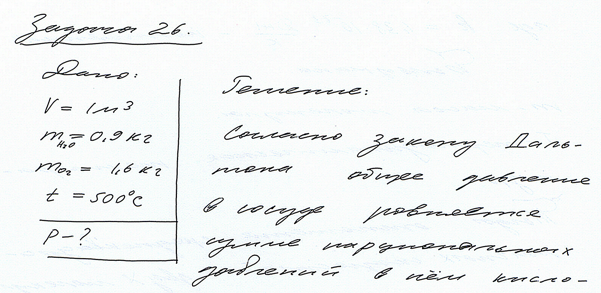 Задача 26.
Дано:
V = 1 м³
m_H₂O = 0,9 кг
m_O₂ = 1,6 кг
t = 500°C
P - ?
Решение:
Согласно закону Даль-
тона общее давление
в сосуде равняется
сумме парциальных
давлений в нём кисло-